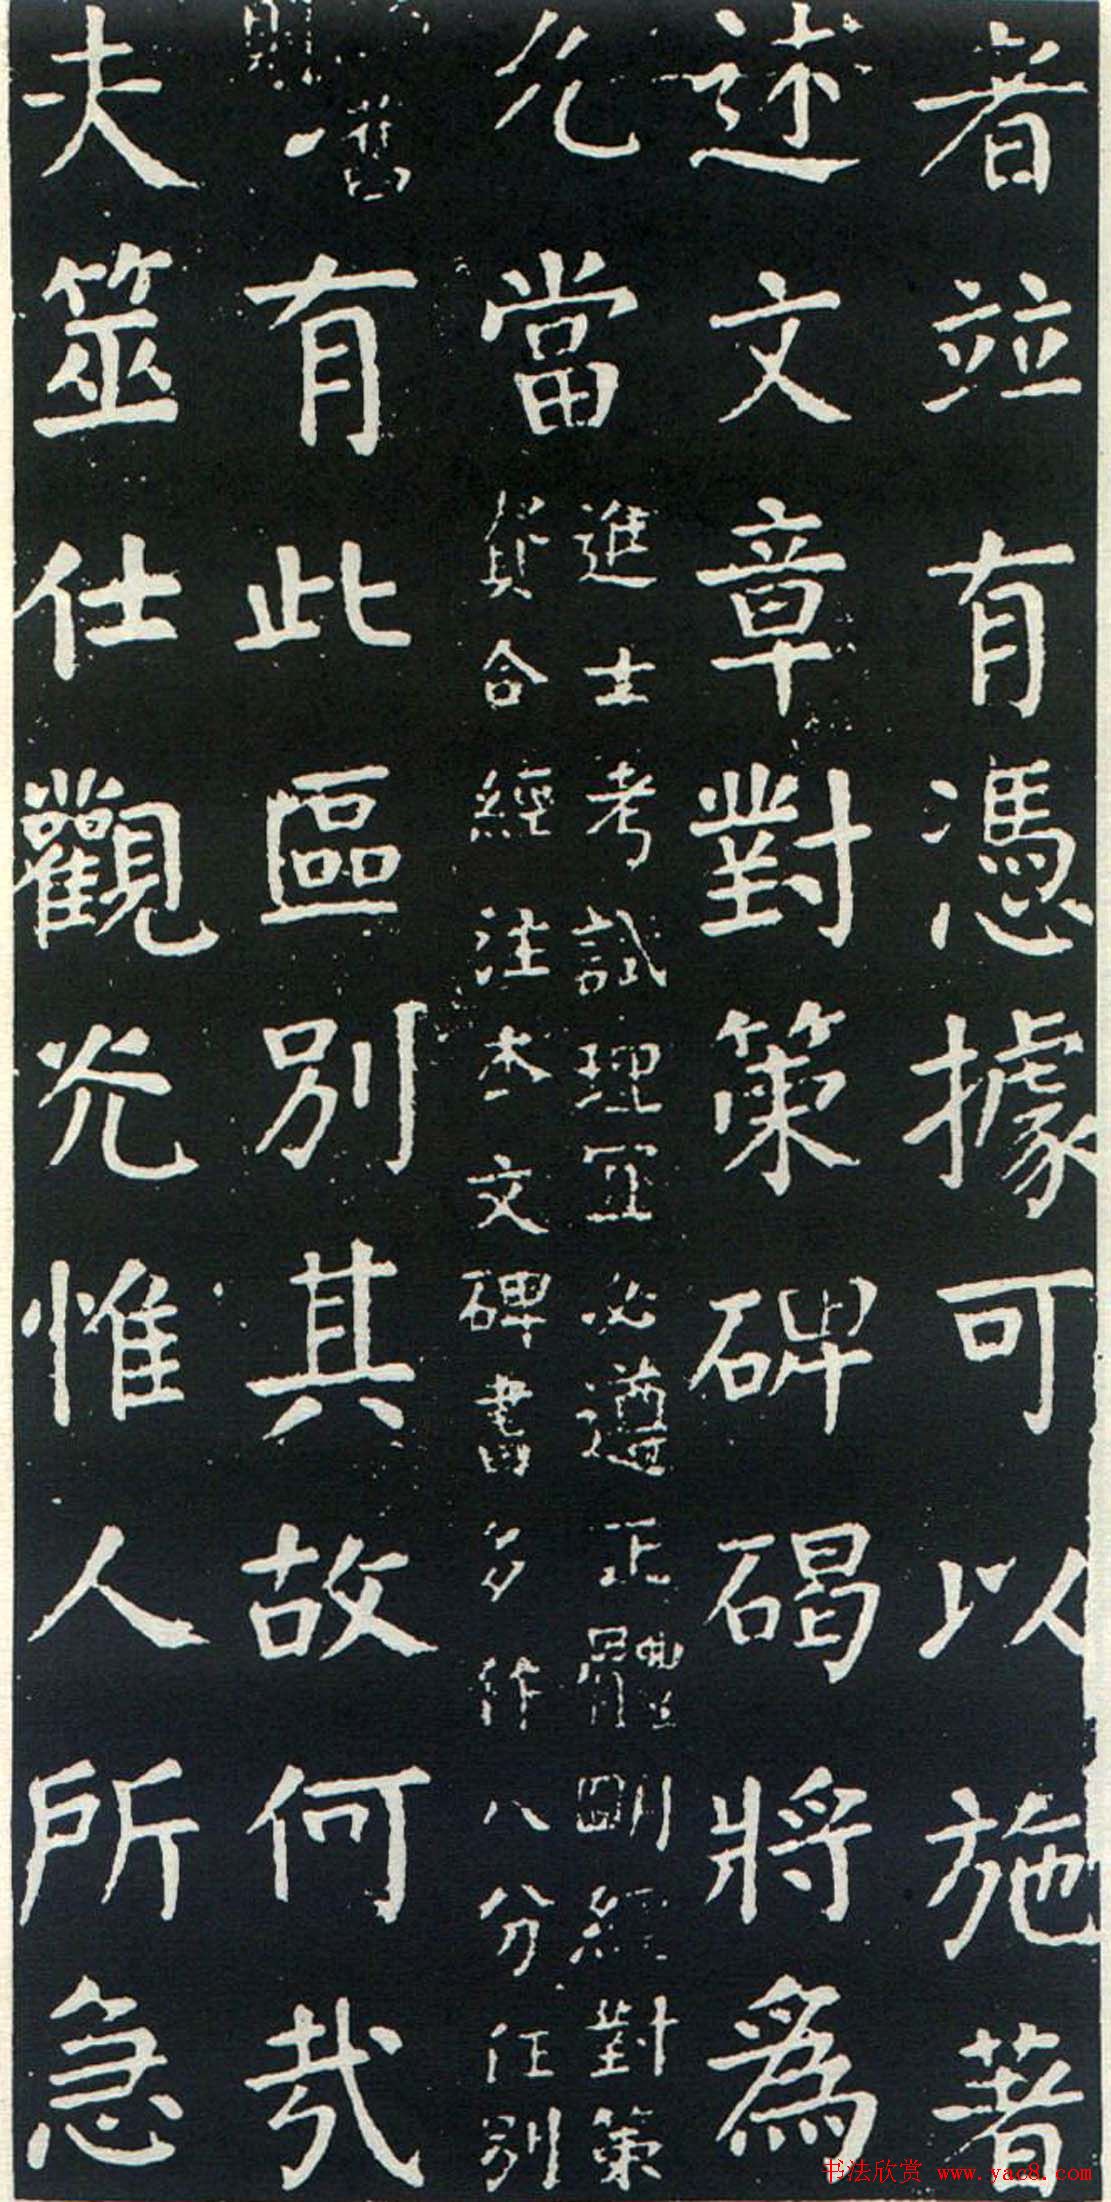 者並有憑據可以施著
述文章對策碑碣將為
允當
進士考試理宜必遵正體明經對策
貴合經注本文碑書多作八分任別
則舊
有此區別其故何哉
夫筮仕觀光惟人所急
书法欣赏 www.yac8.com